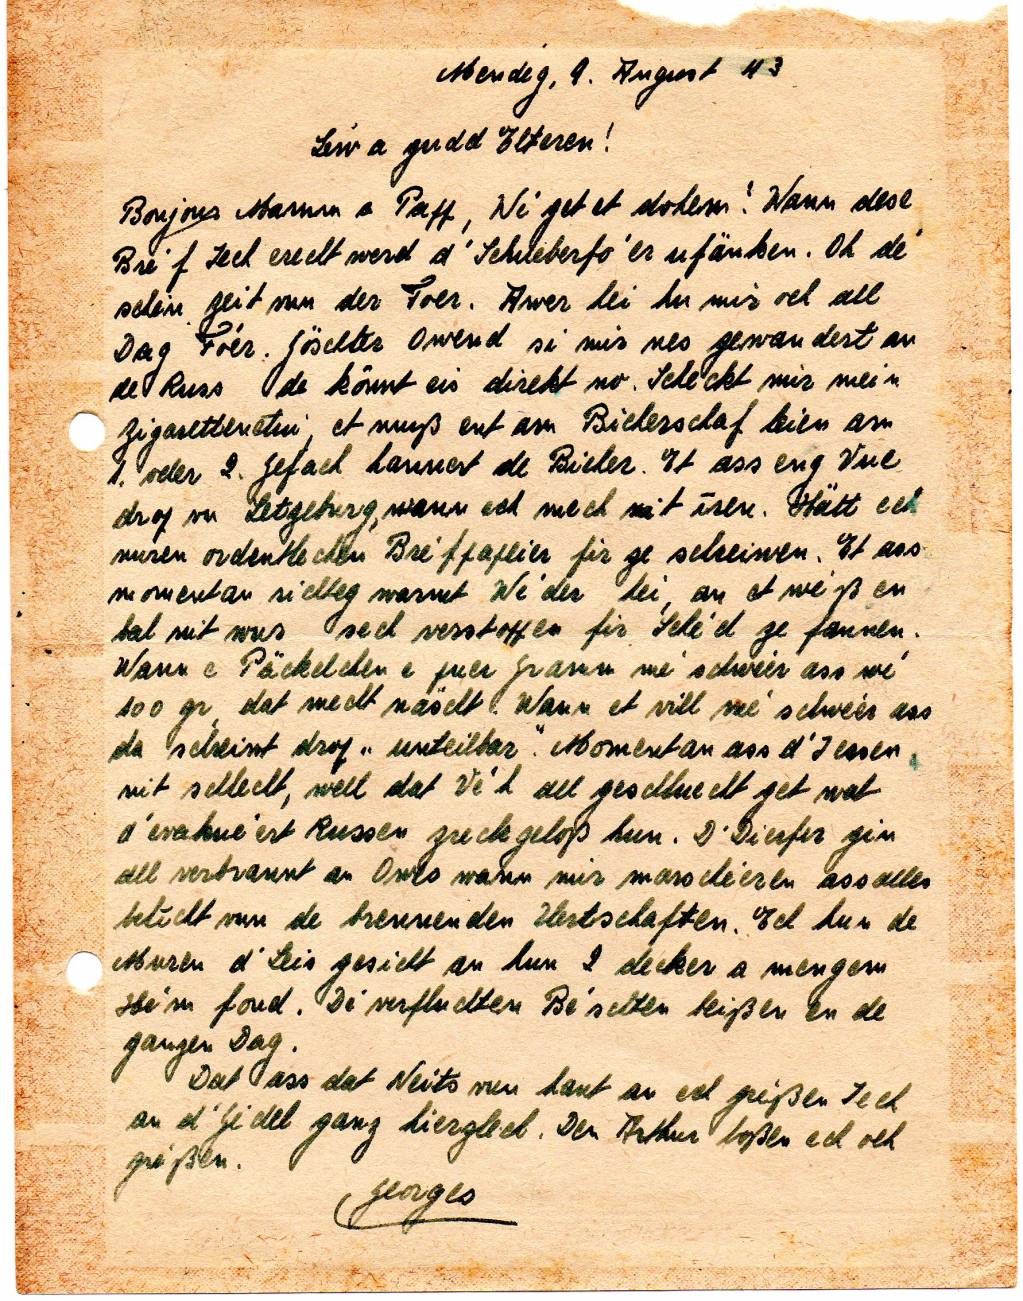 Mendeg, 9. August 43
Léiw a gudd Elteren!
Bonjour Mamm a Papp, Wi get et dohém! Wann dese
Bre'f Iech erecht werd d'Schueberfo'er ufänken. Oh de'
schéin Zeit vun der Foer. Awer hei hu mir och all
Dag Foér. Göschter Owend si mir nes gewandert an
de Russ de könnt eis direkt no. Scheckt mir mein
Zigarettenetui, et muß ent am Bicherschaf leien am
1. oder 2. Gefach hannert de Bicher. Et ass eng Vue
drop vu Letzeburg, wann ech mech nit iren. Hätt ech
nuren ordentlechen Bre'fpapeier fir ze schreiwen. Et ass
momentan richteg warmt We'der hei, an et weiß en
bal nit wus sech verstoppen fir Sche'd ze fannen.
Wann e Päckelchen e puer Gramm mé schwéier ass we'
100 gr, dat mecht näischt. Wann et vill me' schwéier ass
da schreint drop „unteilbar". Momentan ass d'Iessen
nit schlecht, well dat Ve'h all geschluecht get wat
d'evakue'ert Russen zreckgeloß hun. D'Dierfer gin
all verbrannt an Owes wann mir marschéieren ass alles
belicht vun de brennenden Uertschaften. Ech hun de
Muren d'Leis gesicht an hun 2 decker a mengem
Hém fond. De' verfluchten Be'schten beißen en de
ganzen Dag.
Dat ass dat Neits vun haut an ech gréißen Iech
an d'Gidel ganz hierzlech. Den Arthur loßen ech och
gréißen.
Georges